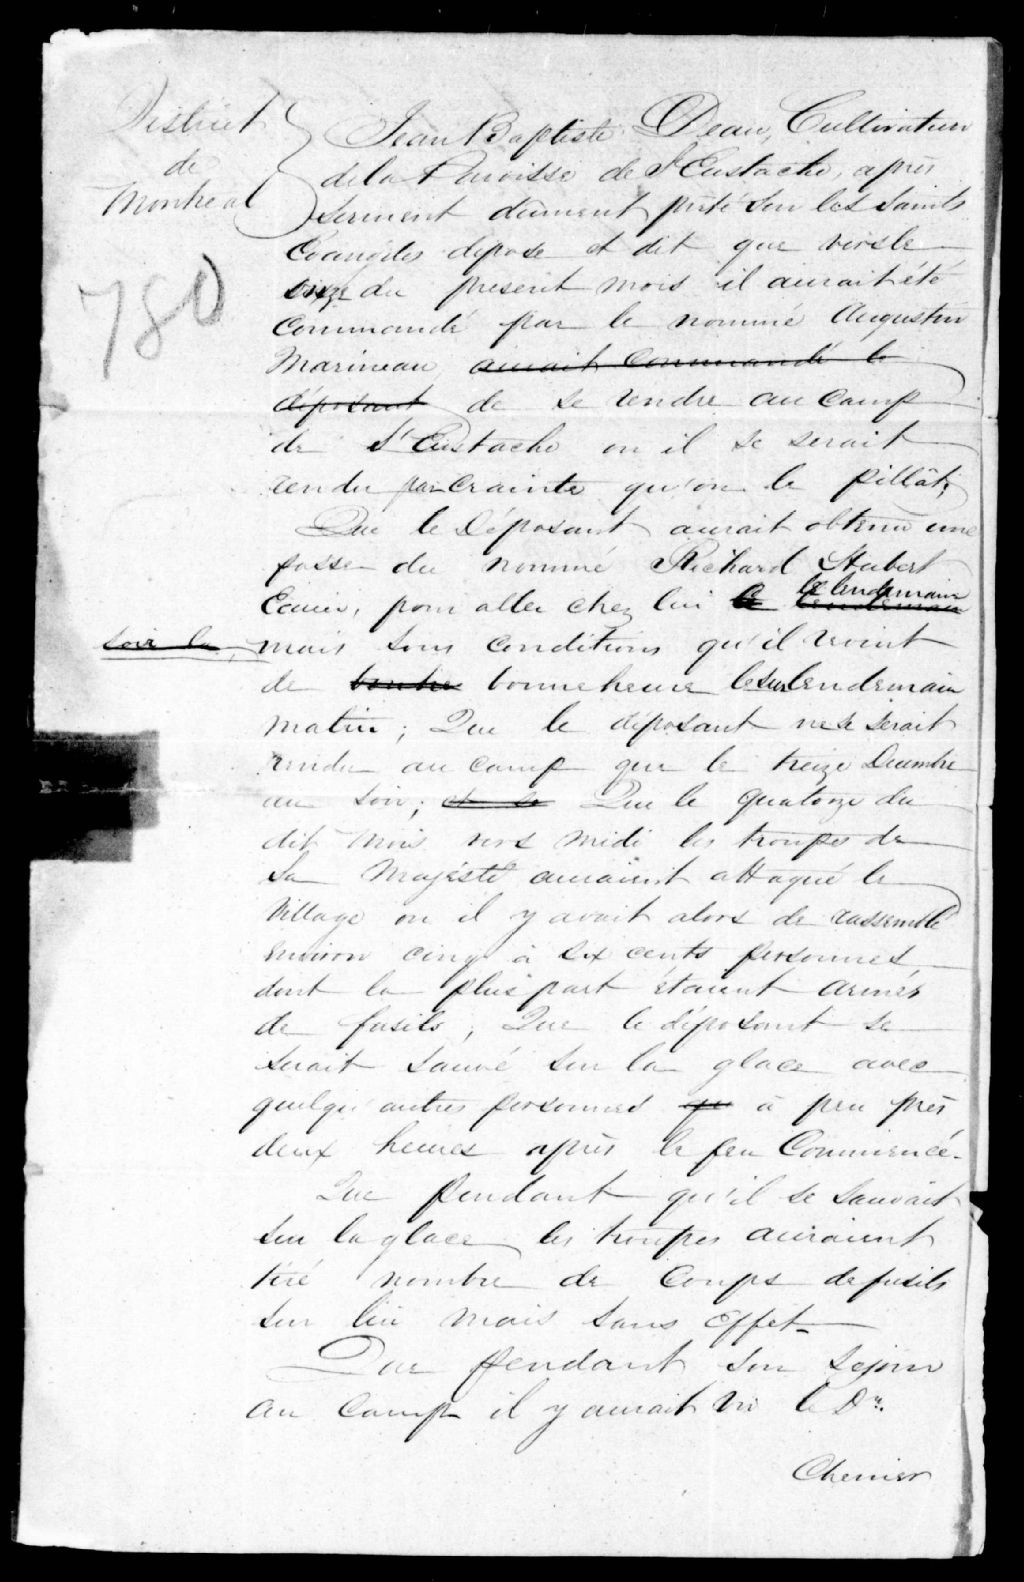 District
de
Montreal
780
Jean Baptiste Deau, Cultivateur
de la Paroisse de St Eustache, après
serment dûment prêté sur les Saints
Évangiles depose et dit que vers le
onze du present mois il aurait été
Commandé par le nommé Augustin
Marineau aurait Commandé le
déposant de se rendre au Camp
de St Eustache ou il se serait
rendu par crainte qu'on le pillât;
Que le Déposant aurait obtenu une
passe du nommé Richard Hubert
Ecuier, pour aller chez lui le lendemain
le lendemain
soir la, mais sous conditions qu'il revint
de bonne heure le surlendemain
matin; Que le déposant ne se serait
rendu au camp que le treize Decembre
au soir; et se Que le quatorze du
dit mois vers midi les troupes de
Sa Majésté auraient attaqué le
Village ou il y avait alors de rassemblé
environ cinq à six cents personnes,
dont la plus part étaient armés
de fusils, Que le déposant se
serait sauvé sur la glace avec
quelqu'autres personnes à peu près
deux heures après le feu Commencé.
Que pendant qu'il se sauvait
sur la glace les troupes auraient
tiré nombre de Coups de fusils
sur lui mais sans effet.
Que pendant son sejour
au Camp il y aurait vu le Dr.
Chenier